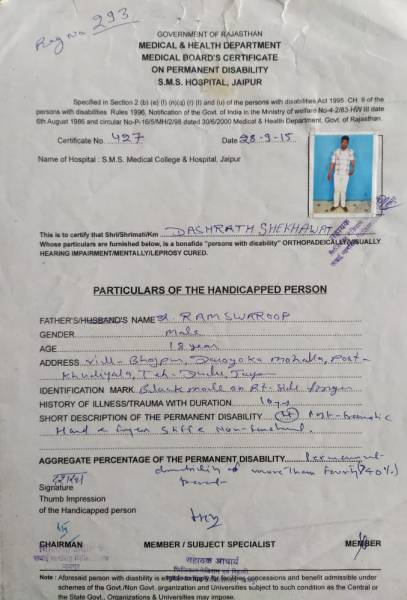 Reg no 293
GOVERNMENT OF RAJASTHAN
MEDICAL & HEALTH DEPARTMENT
MEDICAL BOARD'S CERTIFICATE
ON PERMANENT DISABILITY
S.M.S. HOSPITAL, JAIPUR
Specified in Section 2 (b) (e) (l) (n)(q) (r) (t) and (u) of the persons with disabilities Act 1995 CH. II of the
persons with disabilities Rules 1996, Notification of the Govt. of India in the Ministry of welfare No-4-2/83-HW III date
6th August 1986 and circular No-P-16/5/MH/2/98 dated 30/6/2000 Medical & Health Department, Govt. of Rajasthan.
Certificate No. 427 Date 28-9-15
Name of Hospital : S.M.S. Medical College & Hospital, Jaipur
This is to certify that Shri/Shrimati/Km DASHRATH SHEKHAWAT
Whose particulars are furnished below, is a bonafide "persons with disability" ORTHOPADEICALLY/VISUALLY
HEARING IMPAIRMENT/MENTALLY/LEPROSY CURED.
PARTICULARS OF THE HANDICAPPED PERSON
FATHER'S/HUSBAND'S NAME RAMSWAROOP
GENDER male
AGE 18 year
ADDRESS vill- Bhojpur, mohalla, Post-
Khudiyala, Teh- Dudu,
IDENTIFICATION MARK Black mole on Rt- Side finger
HISTORY OF ILLNESS/TRAUMA WITH DURATION
SHORT DESCRIPTION OF THE PERMANENT DISABILITY Post-traumatic
Hand & finger Stiff Non-functional
AGGREGATE PERCENTAGE OF THE PERMANENT DISABILITY Permanent
disability of more than forty (40%)
Signature
Thumb Impression
of the Handicapped person
CHAIRMAN MEMBER / SUBJECT SPECIALIST MEMBER
सहायक आचार्य
Note : Aforesaid person with disability is eligible for facilities concessions and benefit admissible under
schemes of the Govt./Non Govt. organization and Universities subject to such condition as the Central or
the State Govt., Organizations & Universities may impose.